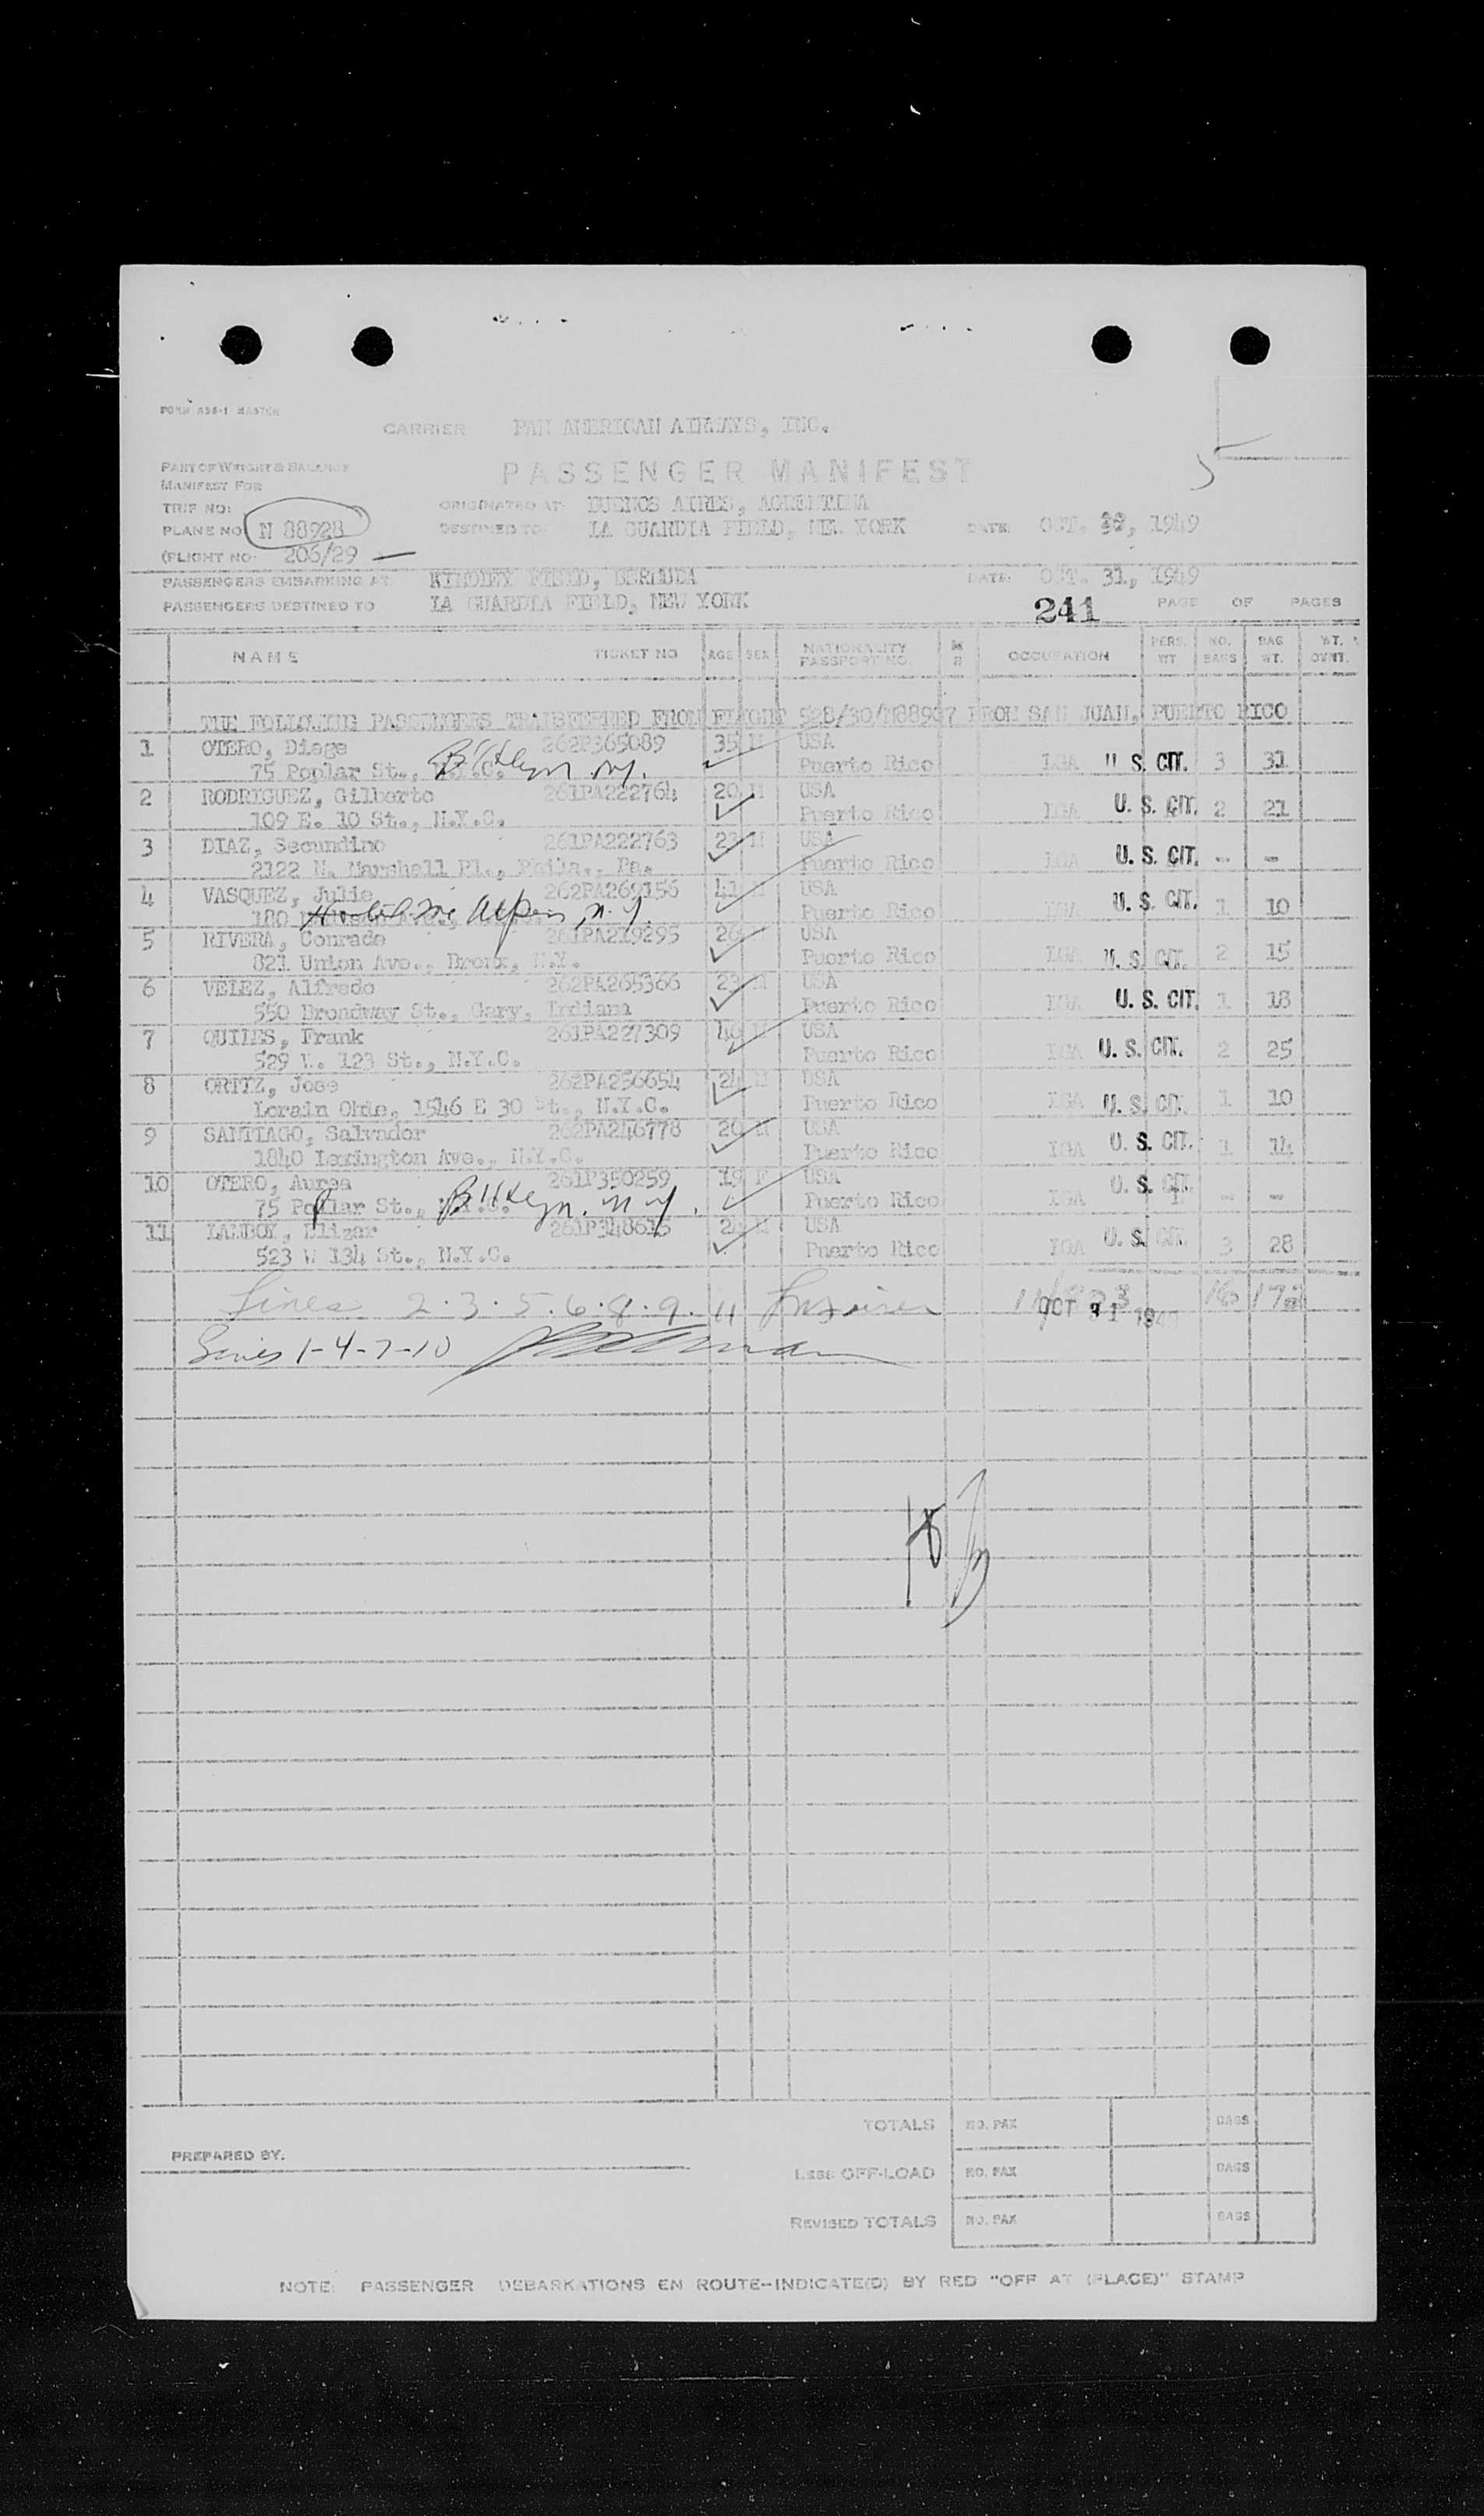 FORM 838-1 MASTER
CARRIER PAN AMERICAN AIRWAYS, INC.
PART OF WEIGHT & BALANCE
PASSENGER MANIFEST
MANIFEST FOR
TRIP NO:
ORIGINATED AT: BUENOS AIRES, AGRENTINA
PLANE NO: N 88928
DESTINED TO: LA GUARDIA FIELD, NEW YORK DATE: OCT. 1949
(FLIGHT NO: 206/29
PASSENGERS EMBARKING AT: KINDLEY FIELD, BERMUDA DATE: OCT. 31, 1949
PASSENGERS DESTINED TO LA GUARDIA FIELD, NEW YORK 241 PAGE OF PAGES
NAME TICKET NO AGE SEX NATIONALITY PASSPORT NO. M S OCCUPATION PERS. WT NO. BAGS BAG WT. WT. OVNT.
THE FOLLOWING PASSENGERS TRANSFERRED FROM FLIGHT 528/30/N88907 FROM SAN JUAN, PUERTO RICO
1 OTERO, Diego 262P365089 35 M USA
75 Poplar St., N.Y.C. B'klyn ny. Puerto Rico LGA U. S. CIT. 3 31
2 RODRIGUEZ, Gilberto 261PA222764 20 M USA
109 E. 10 St., N.Y.C. Puerto Rico LGA U. S. CIT. 2 21
3 DIAZ, Secundino 261PA222763 23 M USA
2122 N. Marshall Pl., Phila., Pa. Puerto Rico LGA U. S. CIT. -- --
4 VASQUEZ, Julio 262PA269156 41 M USA
180 Hotel Mc Alpin, n.y. Puerto Rico LGA U. S. CIT. 1 10
5 RIVERA, Conrado 261PA219295 26 USA
821 Union Ave., Bronx, N.Y. Puerto Rico LGA U. S. CIT. 2 15
6 VELEZ, Alfredo 262PA265366 23 M USA
550 Broadway St., Gary, Indiana Puerto Rico LGA U. S. CIT. 1 18
7 QUILES, Frank 261PA227309 46 M USA
529 W. 123 St., N.Y.C. Puerto Rico LGA U. S. CIT. 2 25
8 ORTIZ, Jose 262PA256654 24 M USA
Lorain Ohio, 1546 E 30 St., N.Y.C. Puerto Rico LGA U. S. CIT. 1 10
9 SANTIAGO, Salvador 262PA246778 20 M USA
1840 Lexington Ave., N.Y.C. Puerto Rico LGA U. S. CIT. 1 14
10 OTERO, Aurea 261P350259 19 F USA
75 Poplar St., B'klyn. n y. Puerto Rico LGA U. S. CIT. -- --
11 LAMBOY, Elizar 261P348615 24 M USA
523 W 134 St., N.Y.C. Puerto Rico LGA U. S. CIT. 3 28
Lines 2.3.5.6.8.9.11 OCT 31 1949 16 172
Lines 1-4-7-10
TOTALS NO. PAX BAGS
PREPARED BY:
LESS OFF-LOAD NO. PAX BAGS
REVISED TOTALS NO. PAX BAGS
NOTE: PASSENGER DEBARKATIONS EN ROUTE-INDICATE(D) BY RED "OFF AT (PLACE)" STAMP